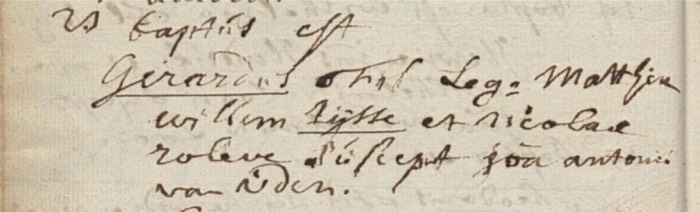 23 baptus est
Girardus Fil Leg: Matthiæ
willem Tijsse et Nicolae
roleve suscept joā antonii
van uden.